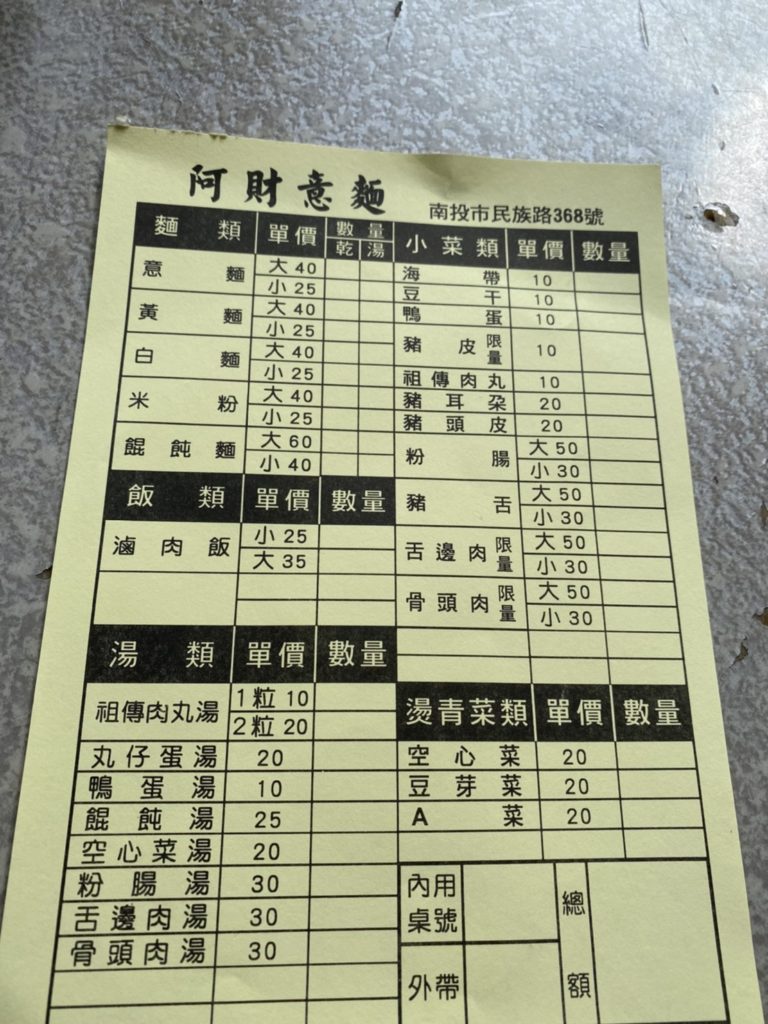 阿財意麵
南投市民族路368號
麵類 單價 數量 乾 湯
意麵 大 40
小 25
黃麵 大 40
小 25
白麵 大 40
小 25
米粉 大 40
小 25
餛飩麵 大 60
小 40
飯類 單價 數量
滷肉飯 小 25
大 35
湯類 單價 數量
祖傳肉丸湯 1粒 10
2粒 20
丸仔蛋湯 20
鴨蛋湯 10
餛飩湯 25
空心菜湯 20
粉腸湯 30
舌邊肉湯 30
骨頭肉湯 30
小菜類 單價 數量
海帶 10
豆干 10
鴨蛋 10
豬皮 限量 10
祖傳肉丸 10
豬耳朶 20
豬頭皮 20
粉腸 大 50
小 30
豬舌 大 50
小 30
舌邊肉 限量 大 50
小 30
骨頭肉 限量 大 50
小 30
燙青菜類 單價 數量
空心菜 20
豆芽菜 20
A菜 20
內用桌號
外帶
總額